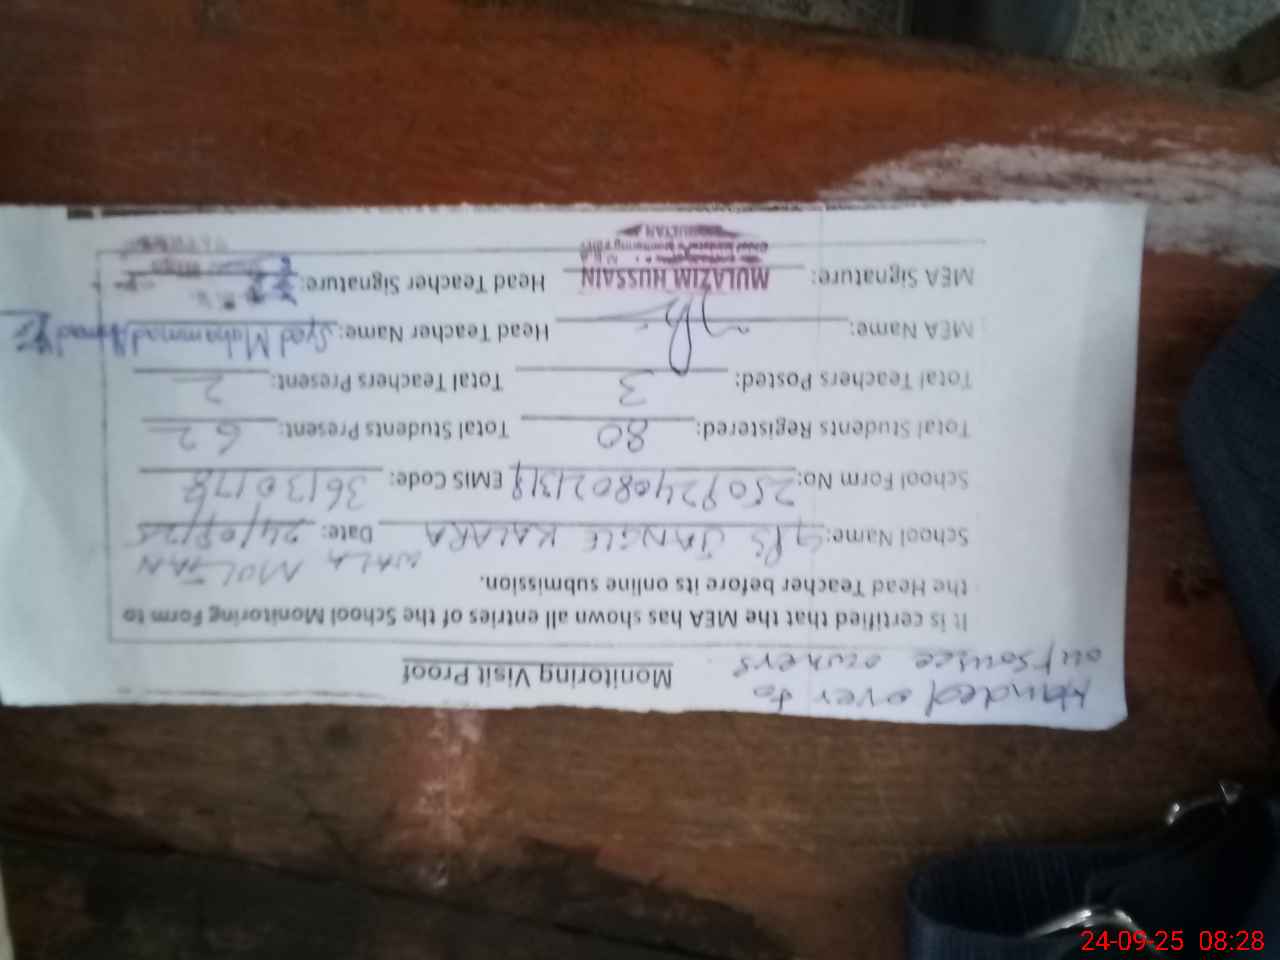 Handed over to
outsource owners
Monitoring Visit Proof
It is certified that the MEA has shown all entries of the School Monitoring Form to
the Head Teacher before its online submission.
WALA MULTAN
School Name: GPS JANGLE KALARA Date: 24/09/25
School Form No: EMIS Code:
Total Students Registered: 80 Total Students Present: 62
Total Teachers Posted: 3 Total Teachers Present: 2
MEA Name: Head Teacher Name: Syed Muhammad
MEA Signature: MULAZIM HUSSAIN Head Teacher Signature:
MULTAN
24-09-25 08:28